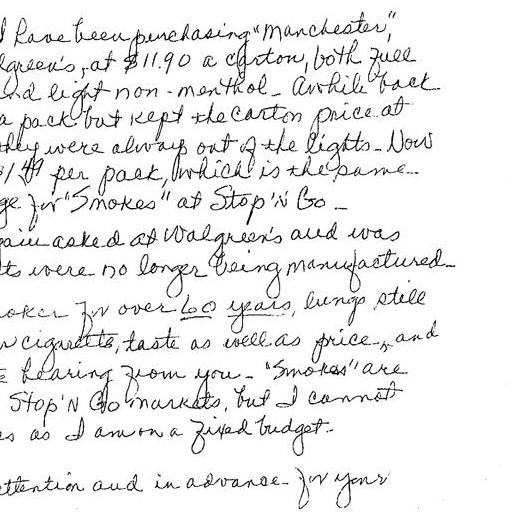 I have been purchasing "Manchester",
lgreen's, at $11.90 a carton, both full
and light non-menthol - Awhile back
a pack but kept the carton price at
they were always out of the lights - Now
$1.49 per pack, which is the same
ge for "Smokes" at Stop 'N Go -
gain asked at Walgreen's and was
ts were no longer being manufactured -
oker for over 60 years, lungs still
cigarette, taste as well as price -, and
hearing from you - "Smokes" are
Stop 'N Go markets, but I cannot
es as I am on a fixed budget -
attention and in advance - for your